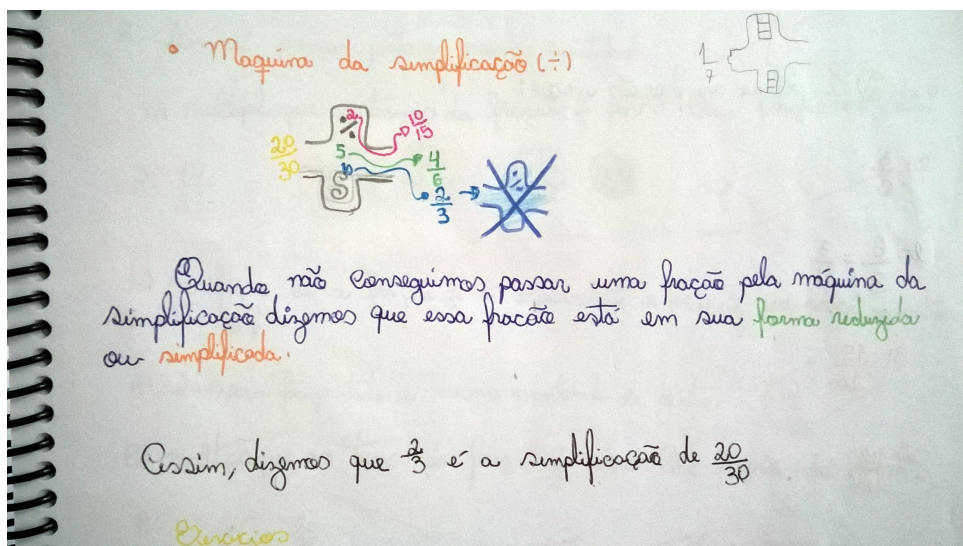 • Maquina da simplificação (÷)
1/7
20/30
÷ 2 10/15
5 4/6
10 2/3
S
÷
Quando não conseguimos passar uma fração pela máquina da
simplificação dizemos que essa fração está em sua forma reduzida
ou simplificada.
Assim, dizemos que 2/3 é a simplificação de 20/30
Exercícios